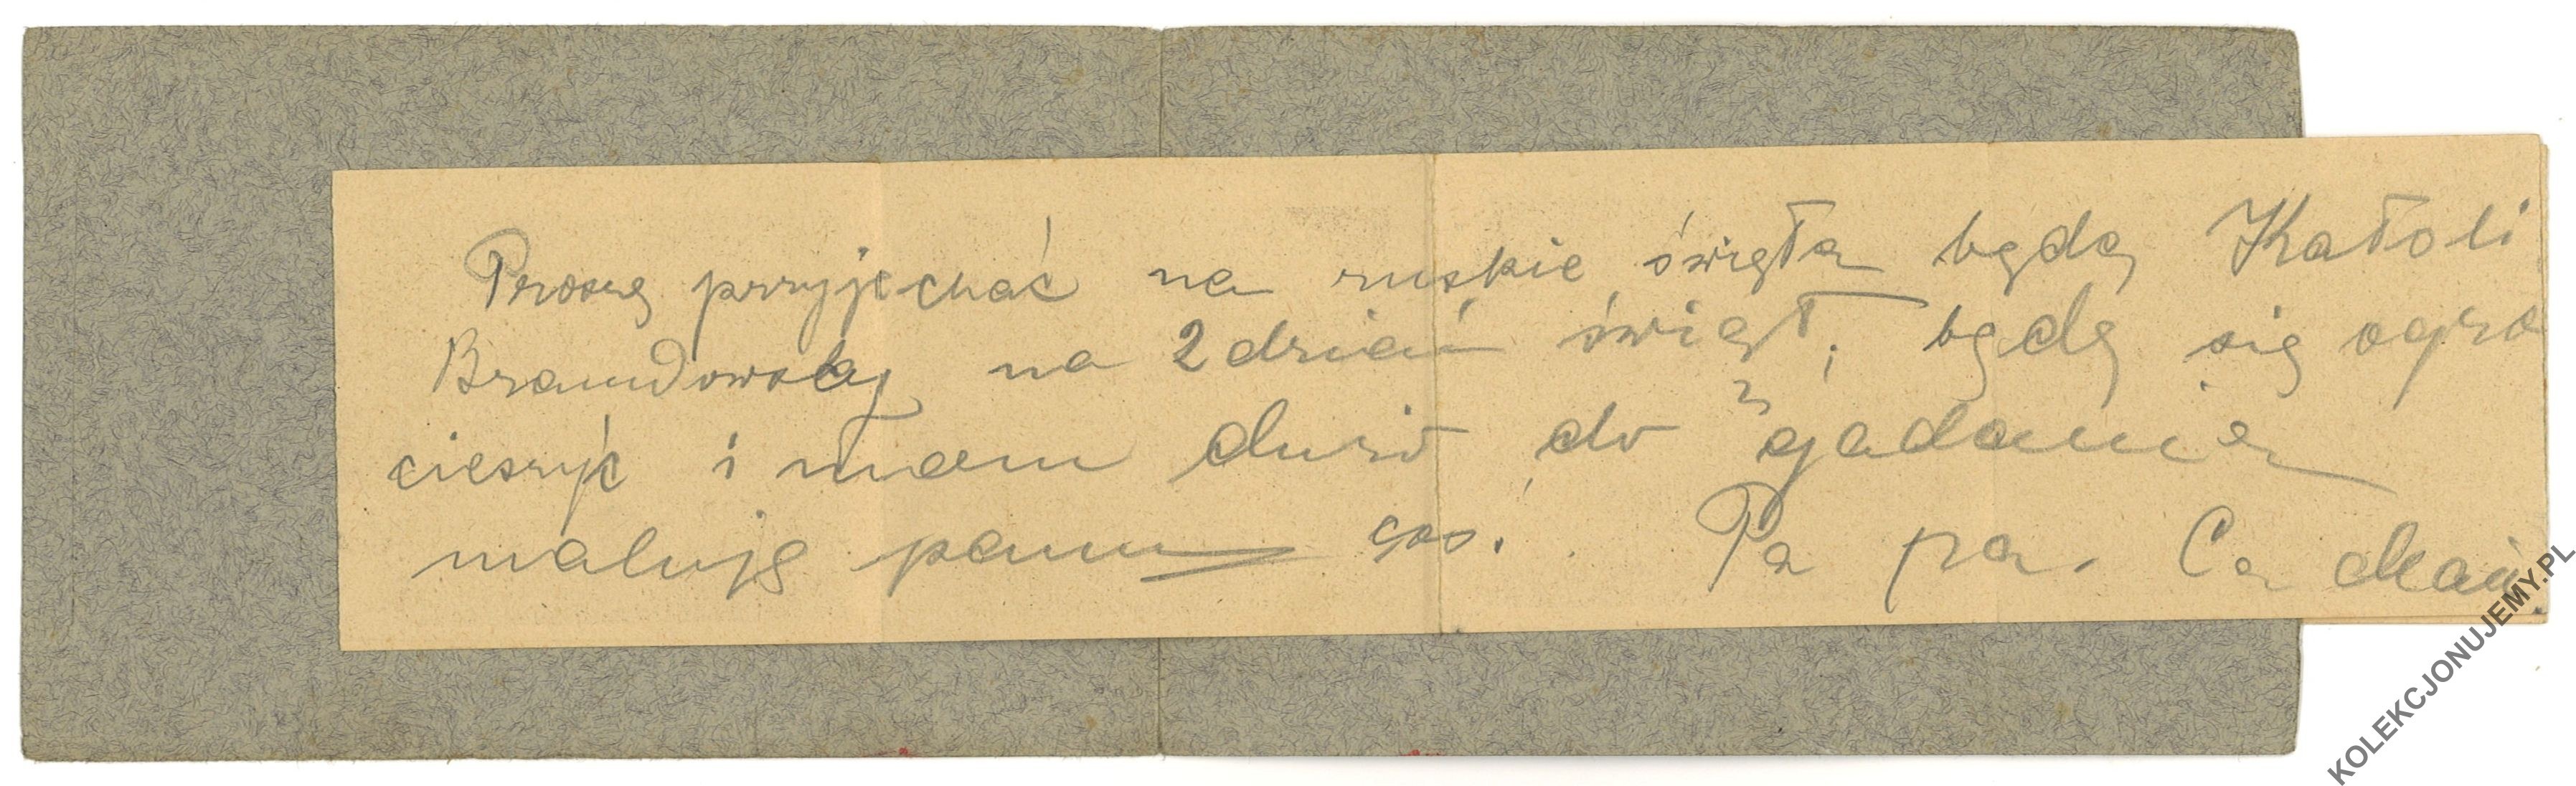 Proszę przyjechać na ruskie święta będą Katoli
na 2 dzień świąt; będę się ogro
cieszyć i mam dużo do gadania
maluję panu coś. Pa pa. Ca
KOLEKCJONUJEMY.PL